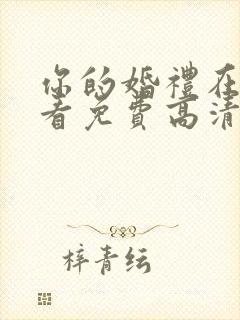 你的婚禮在
看免費高清
梓青纭